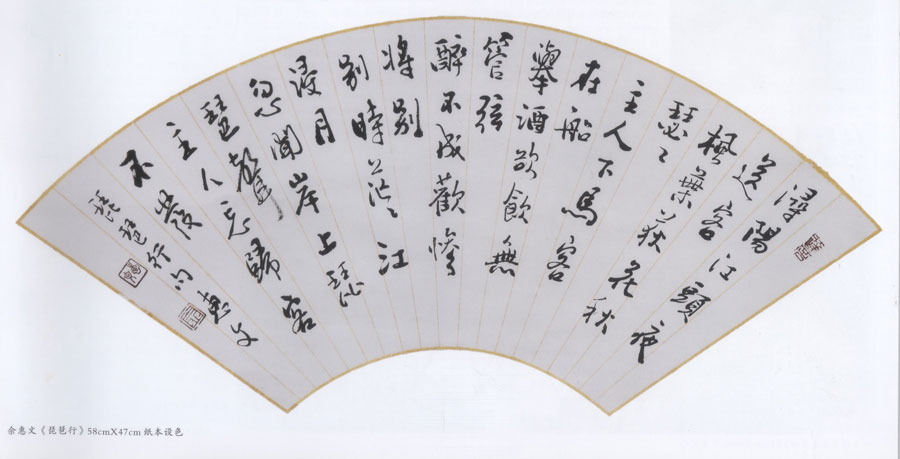 潯陽江頭夜
送客
楓葉荻花秋
瑟〻
主人下馬客
在船
舉酒欲飲無
管弦
醉不成歡慘
將別
別時茫〻江
浸月
忽聞岸上琵
琶聲
主人忘歸客
不發
琵琶行句 惠文
余惠文《琵琶行》58cmX47cm 纸本设色